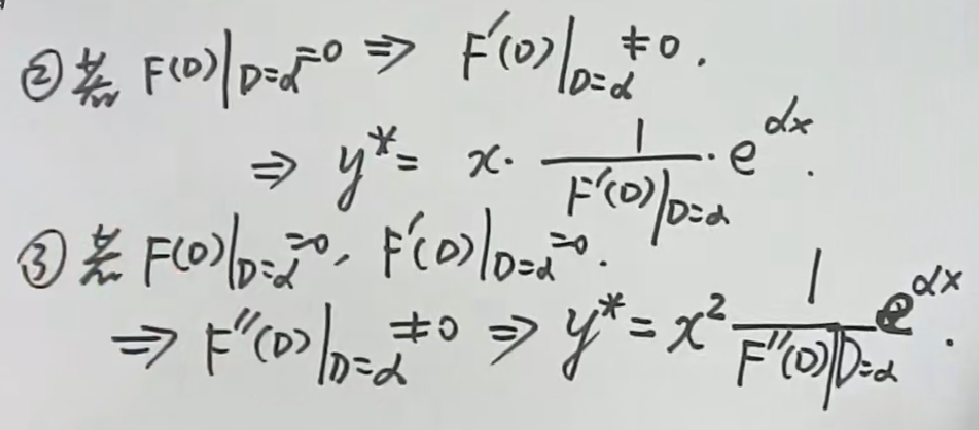 ② 若 F(D)|_{D=α}=0 ⇒ F'(D)|_{D=α}≠0.
⇒ y*= x· 1/(F'(D)|_{D=α}) ·e^{αx}.
③ 若 F(D)|_{D=α}=0, F'(D)|_{D=α}=0.
⇒ F''(D)|_{D=α}≠0 ⇒ y*= x² 1/(F''(D)|_{D=α}) e^{αx}.